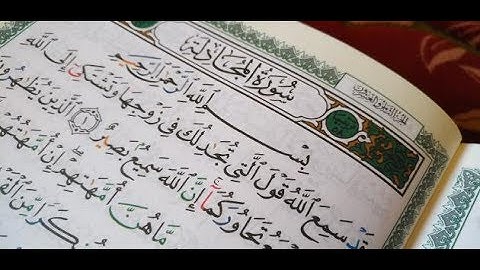 الجزء الثامن والعشرون
سُورَةُ المُجَادلَةِ
بِسْمِ اللَّهِ الرَّحْمَٰنِ الرَّحِيمِ
قَدْ سَمِعَ اللَّهُ قَوْلَ الَّتِي تُجَٰدِلُكَ فِي زَوْجِهَا وَتَشْتَكِي إِلَى اللَّهِ
تَحَاوُرَكُمَا إِنَّ اللَّهَ سَمِيعٌ بَصِيرٌ ١ الَّذِينَ يُظَٰهِرُونَ
مَّا هُنَّ أُمَّهَٰتِهِمْ إِنْ أُمَّهَٰتُهُمْ
مُنكَرًا مِّنَ